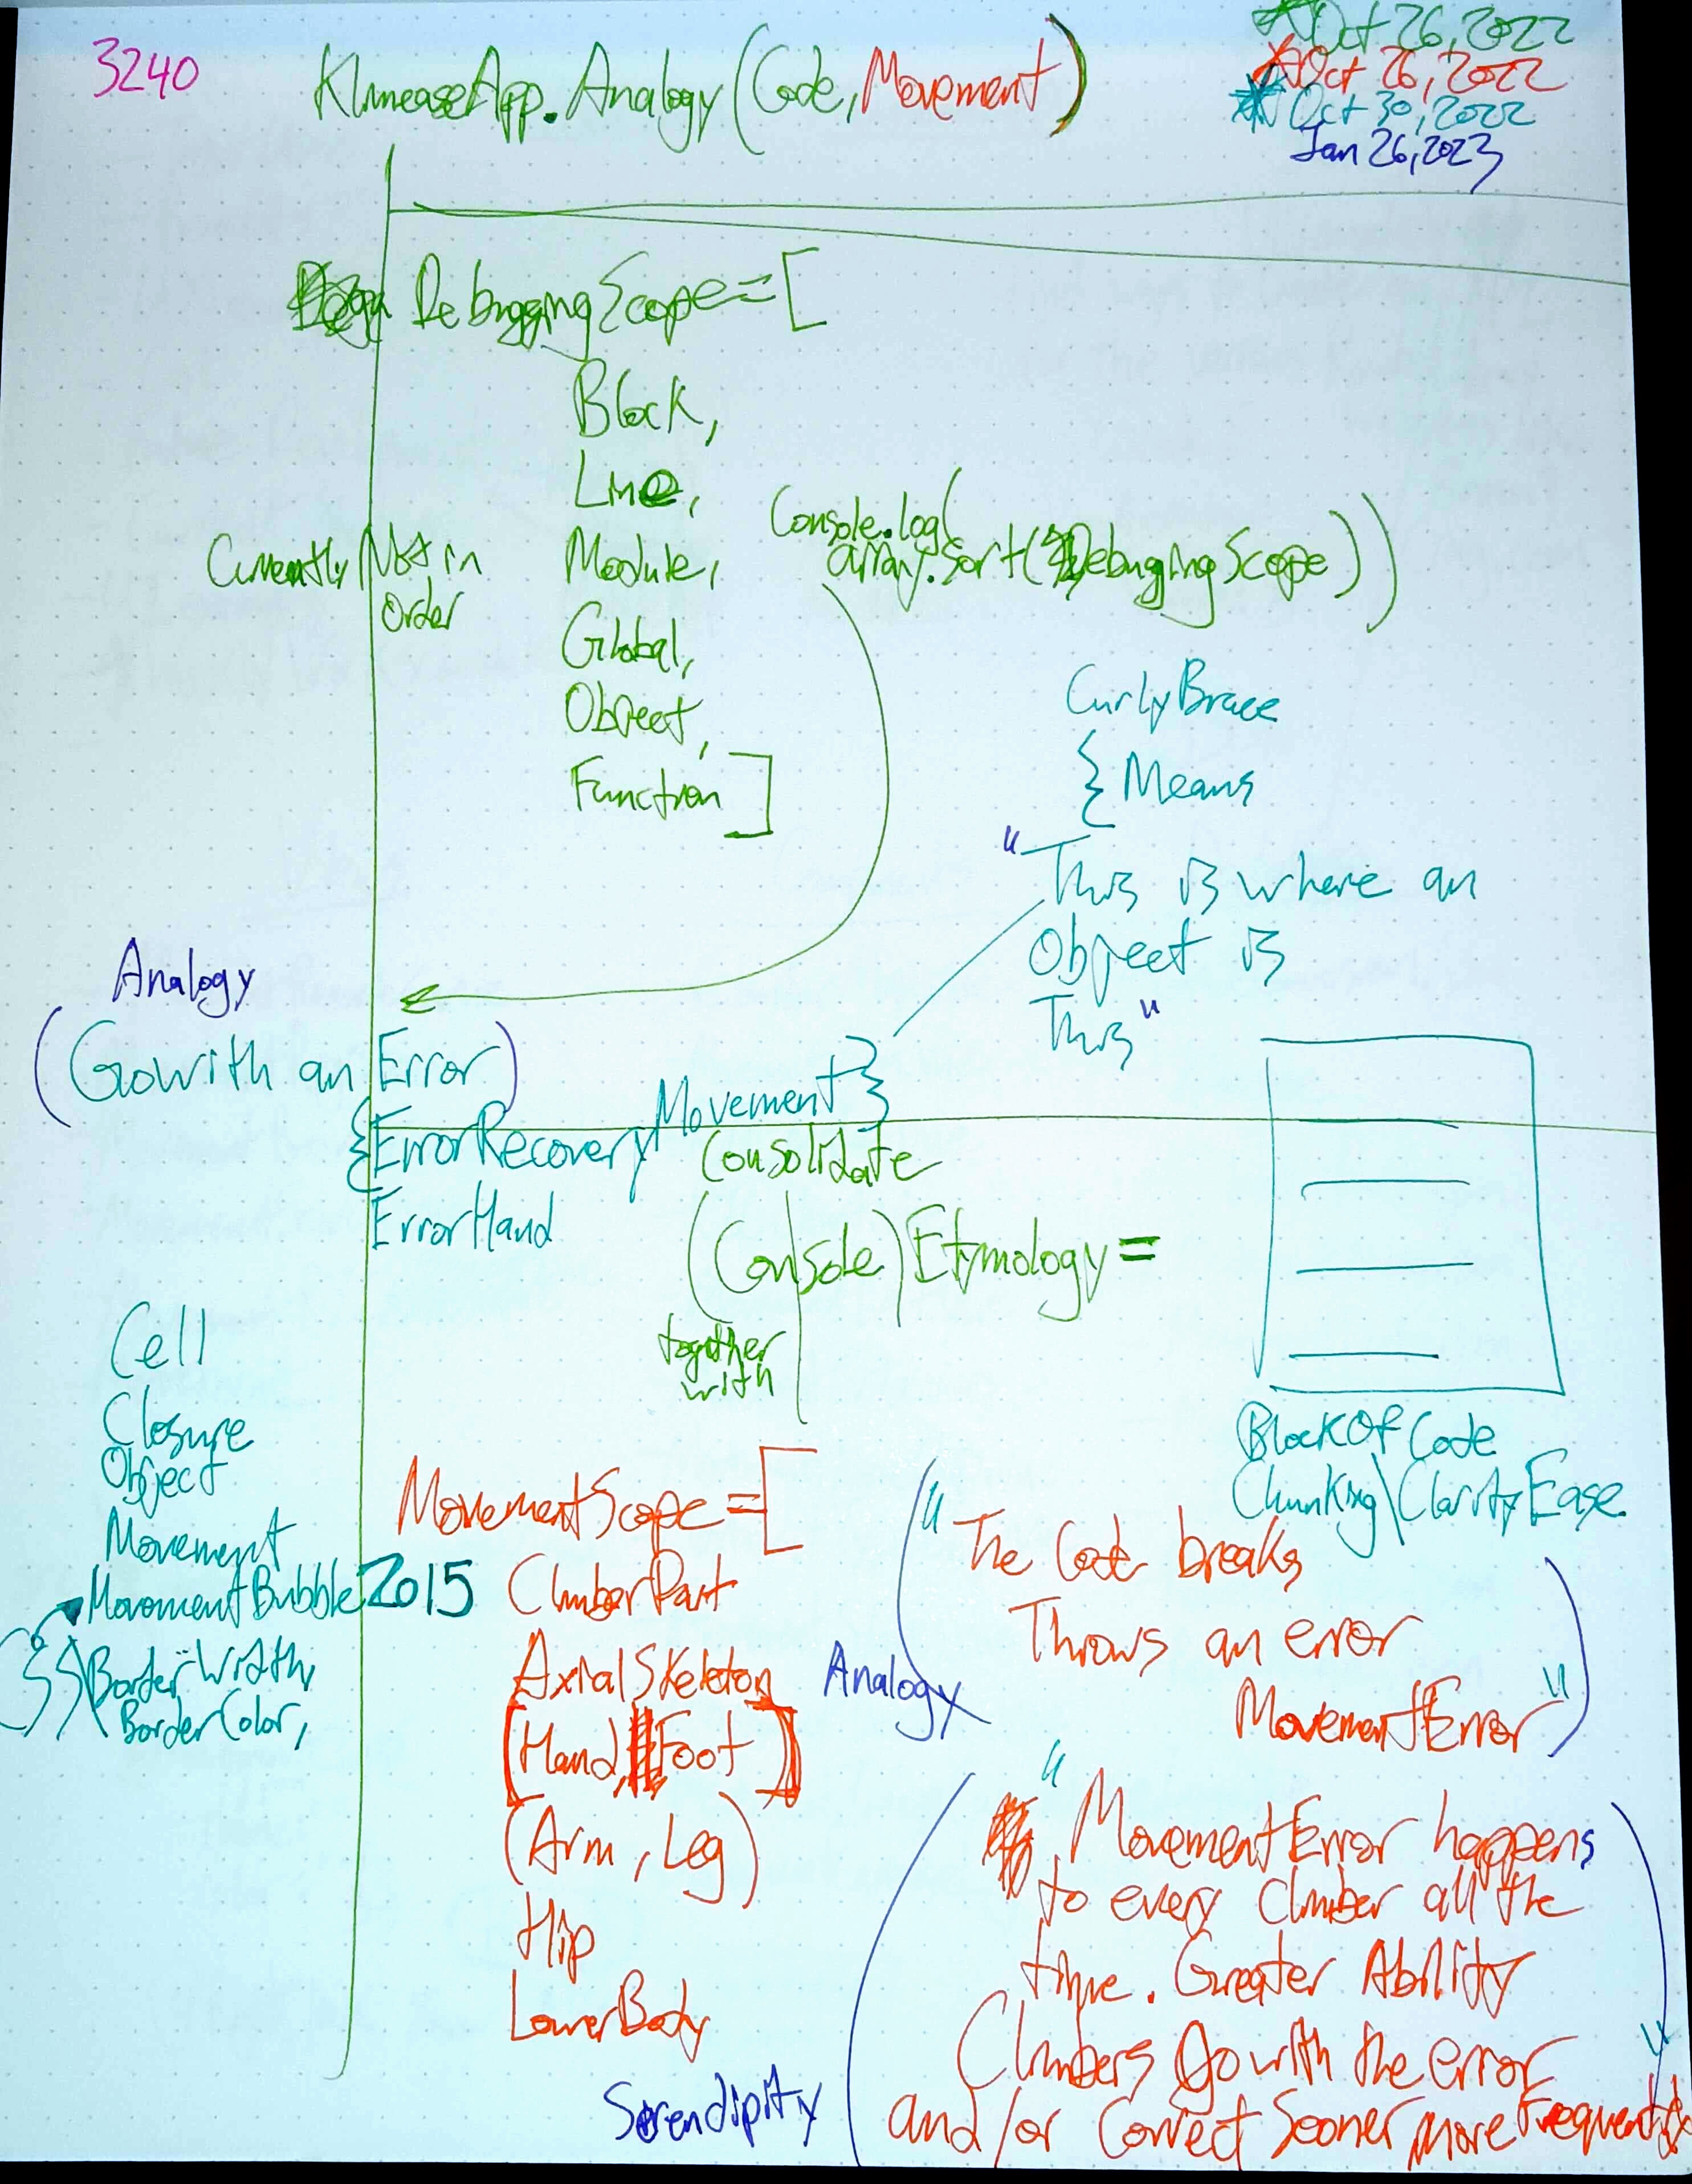 3240
KlimeaseApp.Analogy(Code, Movement)
Oct 26, 2022
Oct 26, 2022
Oct 30, 2022
Jan 26, 2023
DebuggingScope=[
Block,
Line,
Module,
Global,
Object,
Function]
Currently Not in
Order
Console.log(
array.sort(DebuggingScope))
CurlyBrace
{ Means
"This is where an
Object is
This"
Analogy
(Go with an Error)
{ErrorRecoveryMovement}
ErrorHand
Consolidate
(Console)Etymology=
together
with
BlockOfCode
Chunking\ClarityEase
Cell
Closure
Object
Movement
MovementBubble2015
BorderWidth,
BorderColor,
MovementScope=[
ClimberPart
AxialSkeleton
[Hand, Foot]
(Arm, Leg)
Hip
LowerBody
Analogy
("The Code breaks
Throws an error
MovementError")
Serendipity
("MovementError happens
to every climber all the
time. Greater Ability
Climbers Go with the error
and/or Correct Sooner more Frequently")